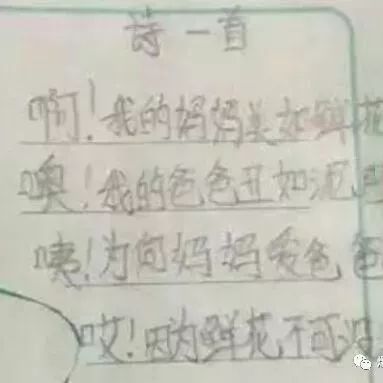 诗一首
啊！我的妈妈美如鲜花
噢！我的爸爸丑如泥
咦！为何妈妈爱爸爸
哎！因为鲜花不可没